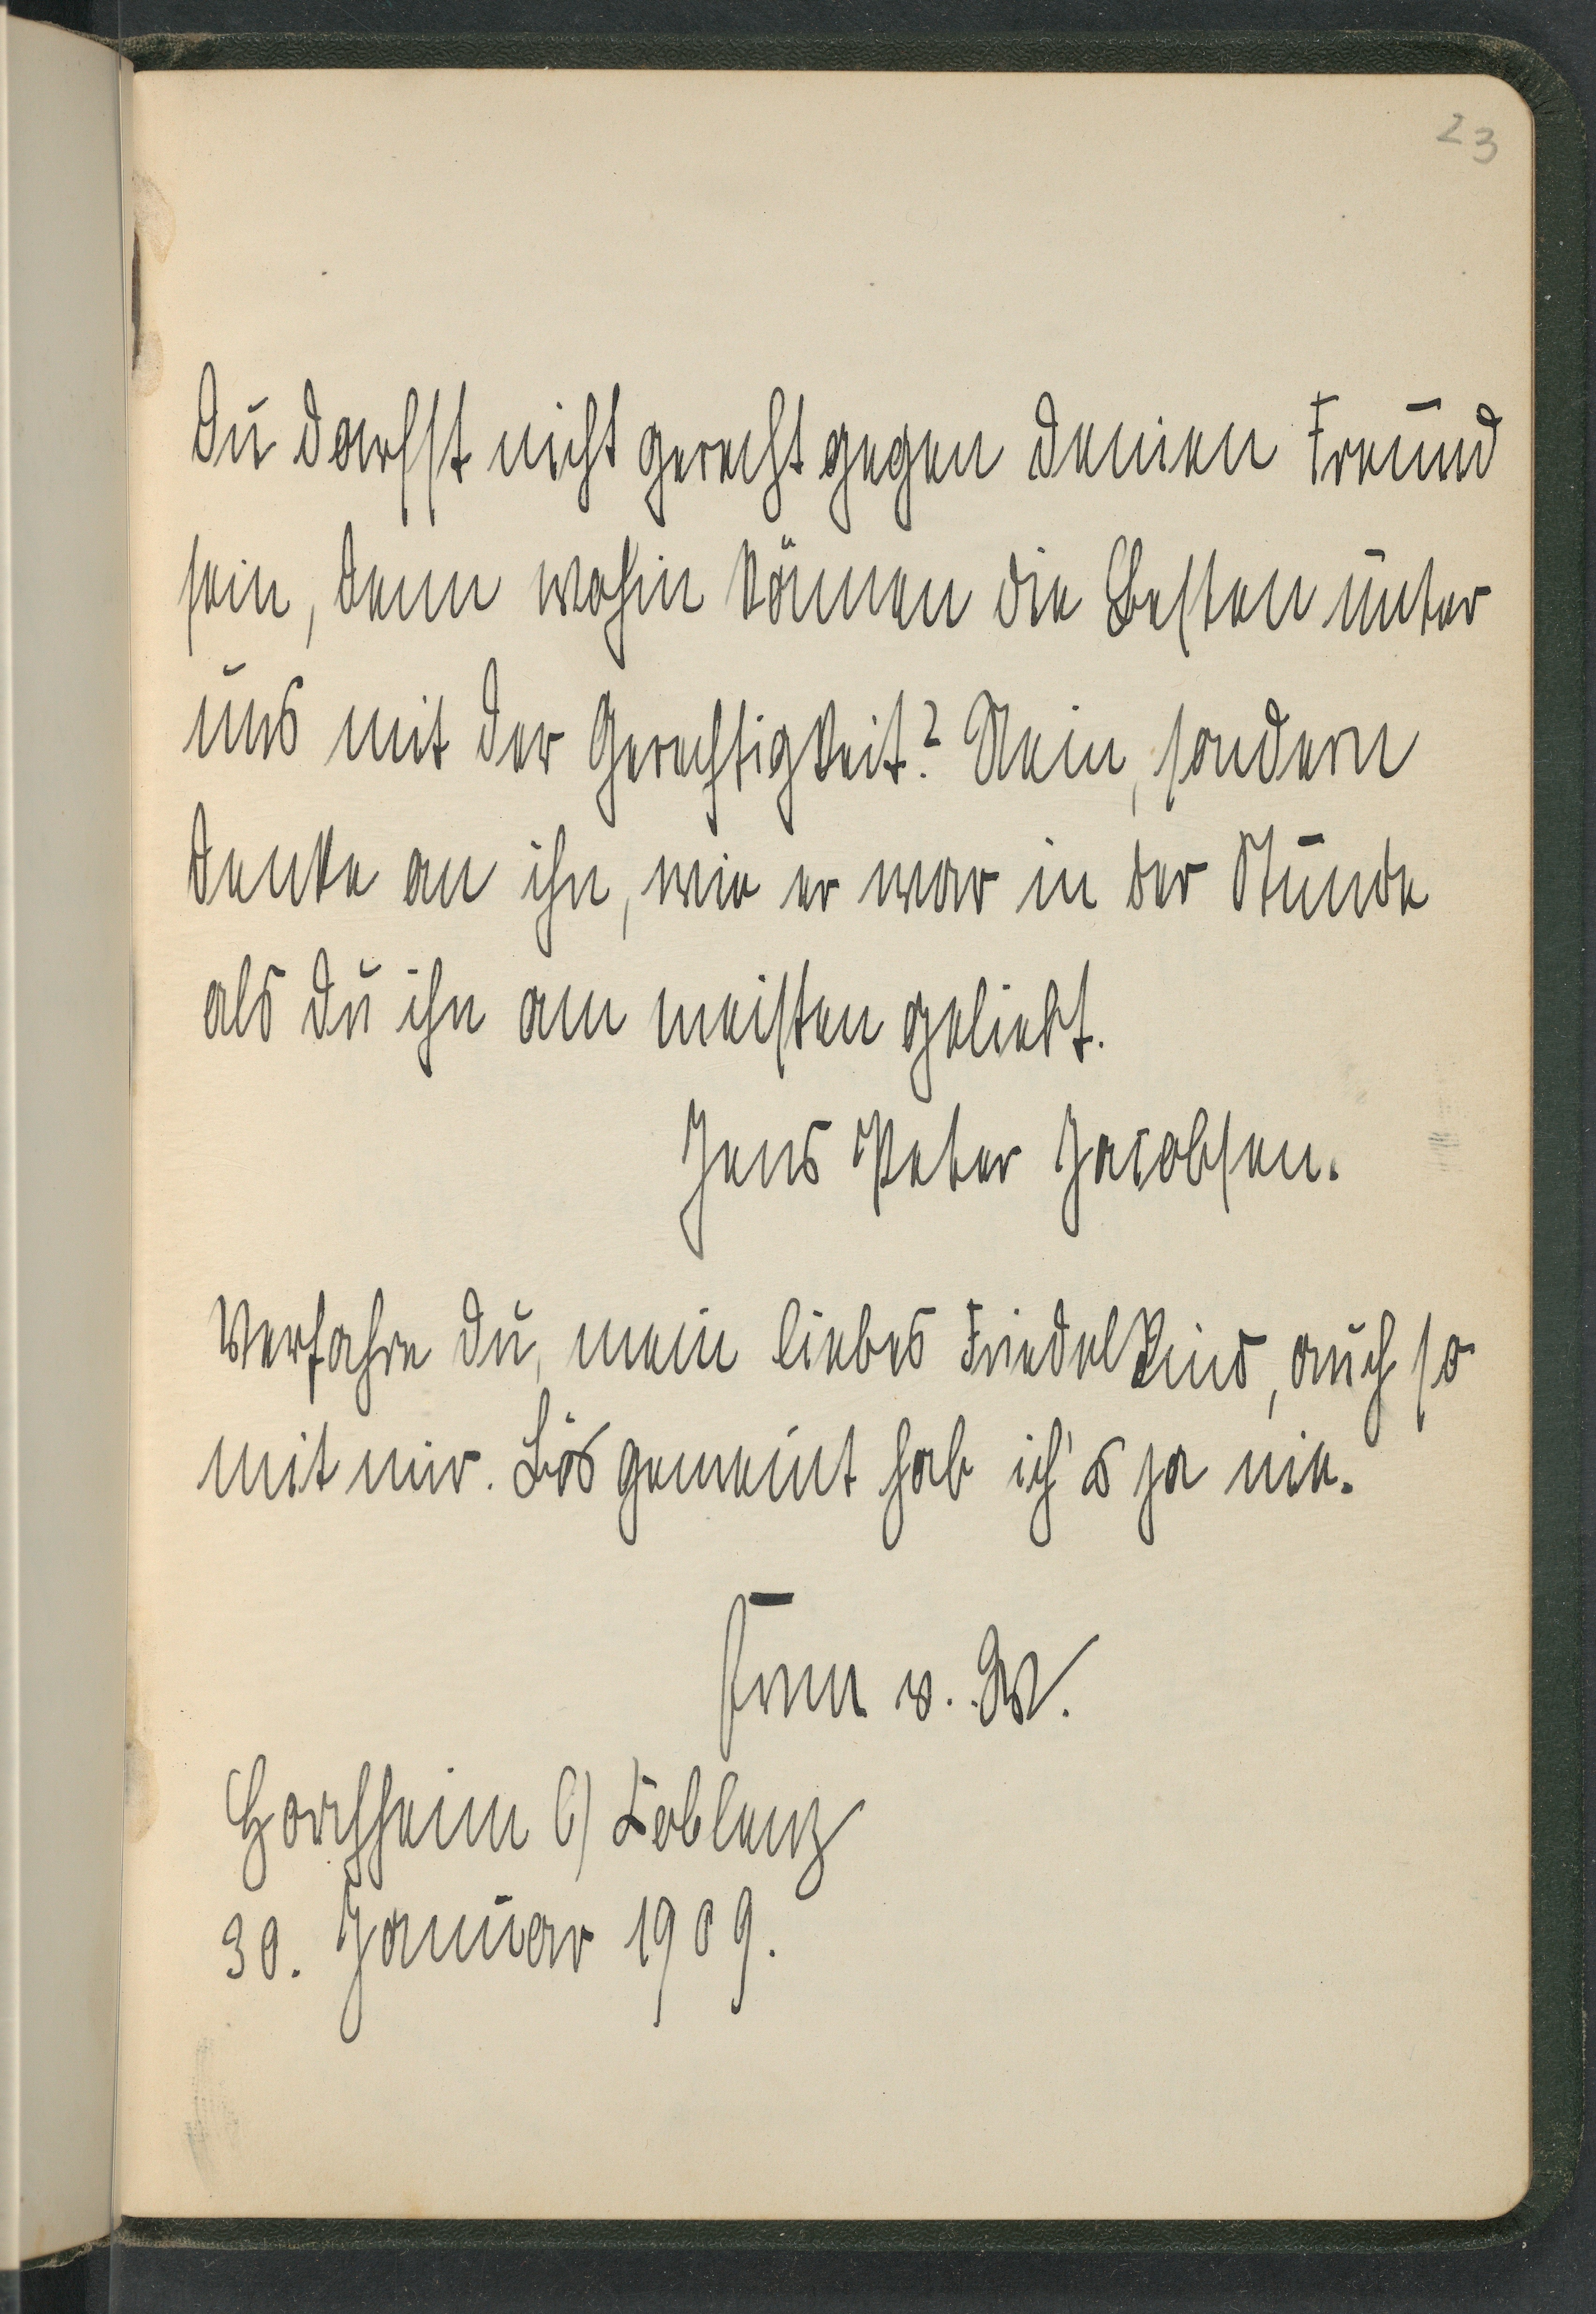 23
Du darfst nicht gerecht gegen deinen Freund
sein, denn wohin können die Besten unter
uns mit der Gerechtigkeit? Nein, sondern
denke an ihn, wie er war in der Stunde
als du ihn am meisten geliebt.
Jens Peter Jacobsen.
Verfahre du, mein liebes Friedelkind, auch so
mit mir. Bös gemeint hab ich's ja nie.
v. W.
Horchheim b/ Coblenz
30. Januar 1909.